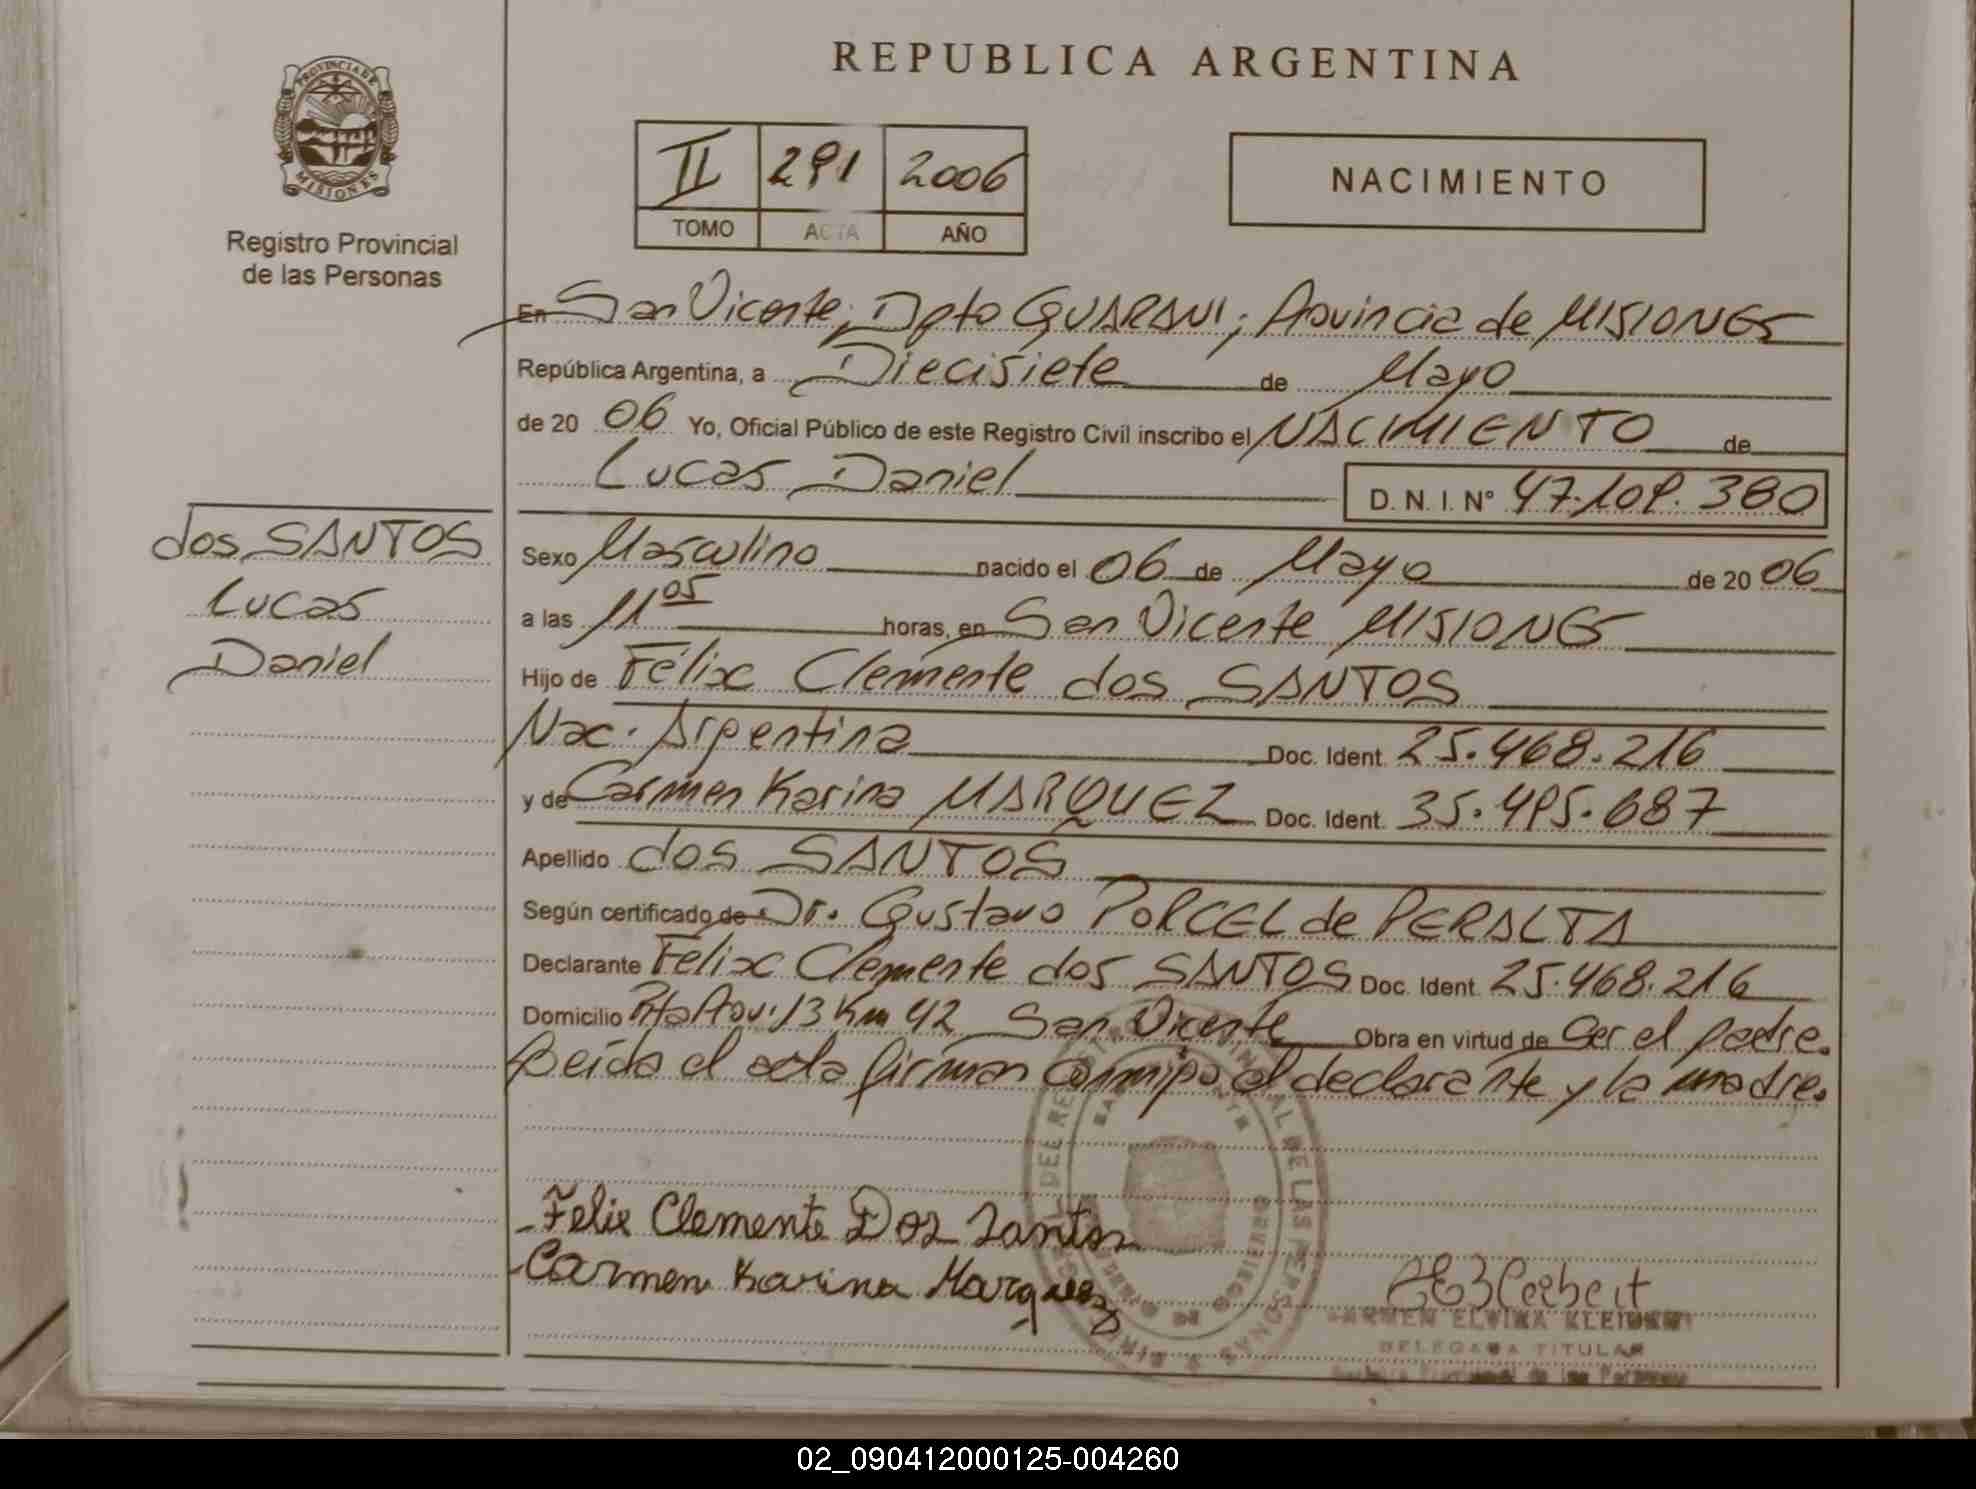 REPUBLICA ARGENTINA
PROVINCIA DE
MISIONES
Registro Provincial
de las Personas
II 291 2006
TOMO ACTA AÑO
NACIMIENTO
En San Vicente; Dpto GUARANI; Provincia de MISIONES
República Argentina, a Diecisiete de Mayo
de 20 06 Yo, Oficial Público de este Registro Civil inscribo el NACIMIENTO de
Lucas Daniel D. N. I. N° 47.109.380
dos SANTOS
Lucas
Daniel
Sexo Masculino nacido el 06 de Mayo de 20 06
a las 11 05 horas, en San Vicente MISIONES
Hijo de Félix Clemente dos SANTOS
Nac. Argentina Doc. Ident. 25.468.216
y de Carmen Karina MARQUEZ Doc. Ident. 35.495.687
Apellido dos SANTOS
Según certificado de Dr. Gustavo PORCEL de PERALTA
Declarante Felix Clemente dos SANTOS Doc. Ident. 25.468.216
Domicilio Rta Prov. 13 Km 42 San Vicente Obra en virtud de ser el padre.
Leída el acta firman conmigo el declarante y la madre.
- Felix Clemente Dos Santos
- Carmen Karina Marquez
CARMEN ELVIRA
DELEGADA TITULAR
02_090412000125-004260